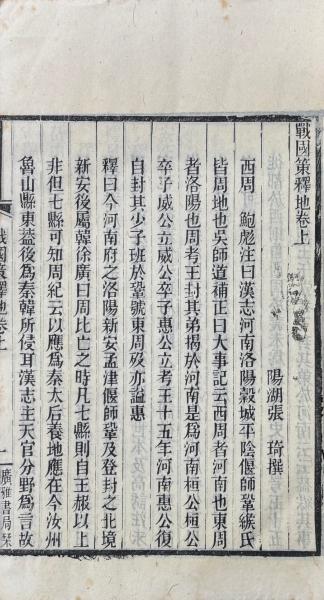 戰國策釋地卷上
陽湖張 琦撰
西周 鮑彪注曰漢志河南洛陽穀城平陰偃師鞏緱氏
皆周地也吳師道補正曰大事記云西周者河南也東周
者洛陽也周考王封其弟揭於河南是爲河南桓公桓公
卒子威公立威公卒子惠公立考王十五年河南惠公復
自封其少子班於鞏號東周殁亦謚惠
釋曰今河南府之洛陽新安孟津偃師鞏及登封之北境
新安後屬韓徐廣曰周比亡之時凡七縣則自王赧以上
非但七縣可知周紀云以應爲秦太后養地應在今汝州
魯山縣東葢後爲秦韓所侵耳漢志主天官分野爲言故
戰國策釋地卷上
一
廣雅書局栞